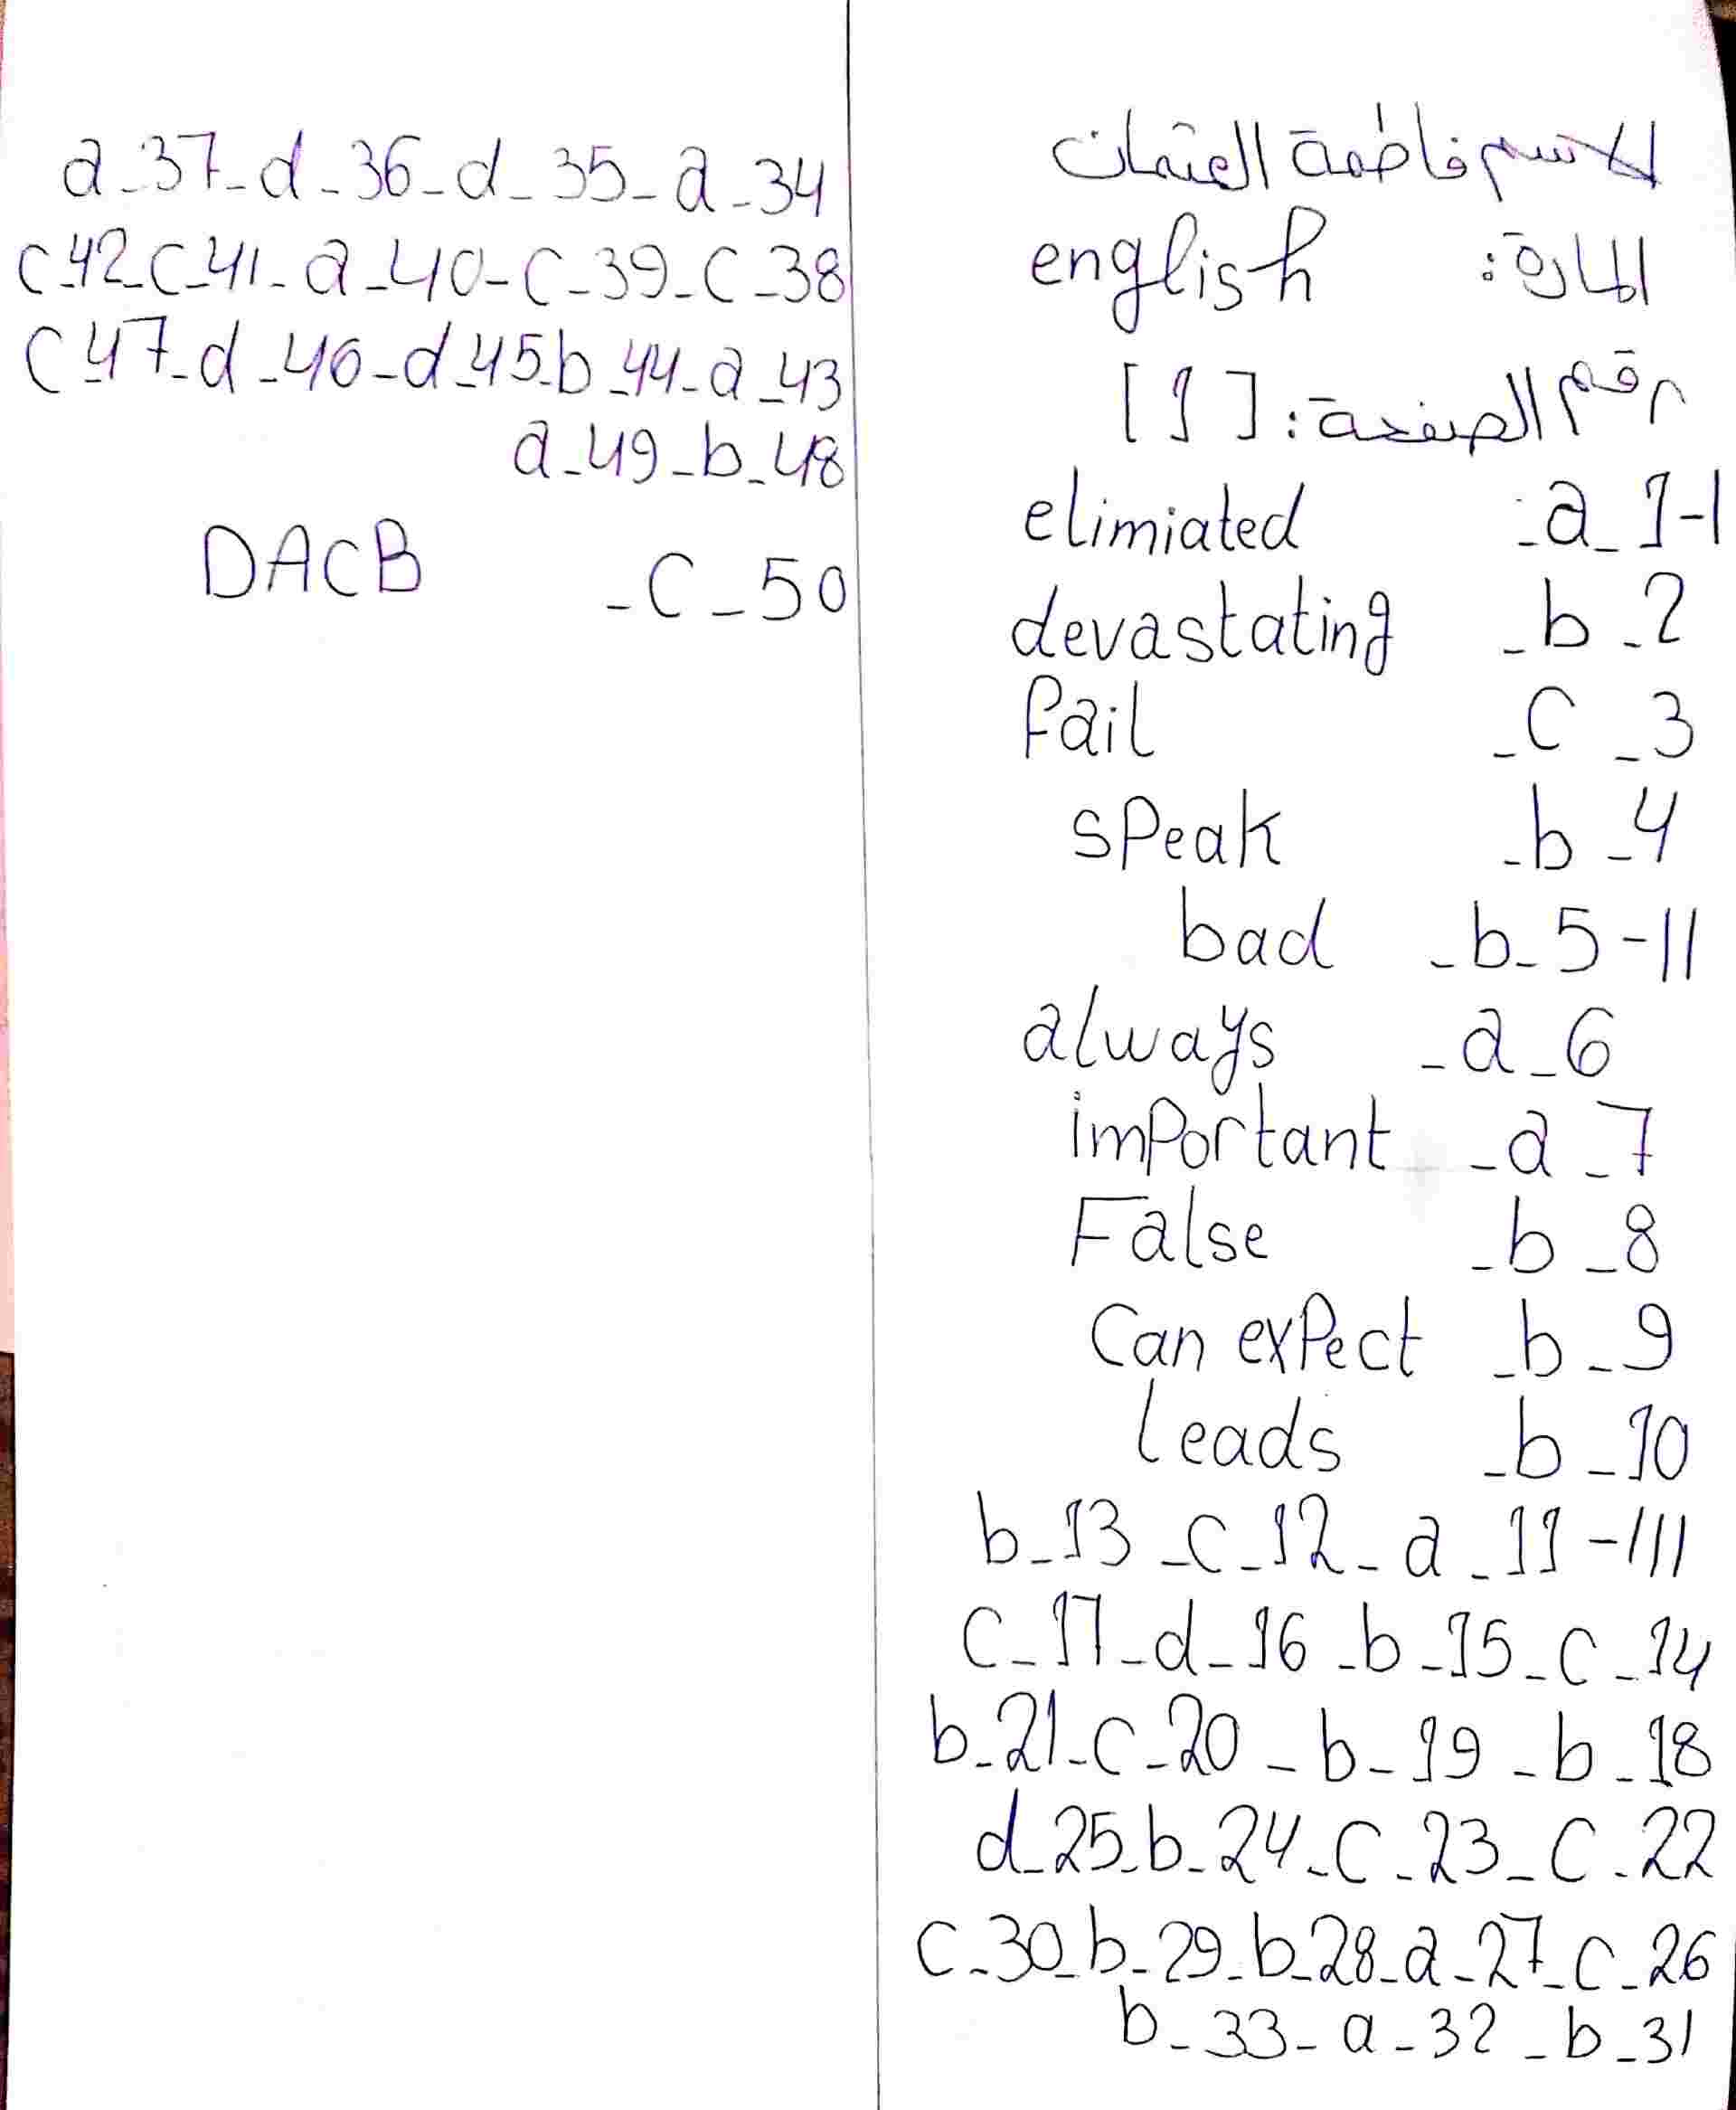 الاسم فاطمة العثمان
المادة: english
رقم الصفحة: [1]
1-1_a_ elimiated
2_b_ devastating
3_c_ fail
4_b_ speak
11-5_b_ bad
6_a_ always
7_a_ important
8_b_ False
9_b_ Can expect
10_b_ leads
111-11_a_12_c_13_b
14_c_15_b_16_d_17_c
18_b_19_b_20_c_21_b
22_c_23_c_24_b_25_d
26_c_27_a_28_b_29_b_30_c
31_b_32_a_33_b
34_a_35_d_36_d_37_a
38_c_39_c_40_a_41_c_42_c
43_a_44_b_45_d_46_d_47_c
48_b_49_a
50_c_ DACB